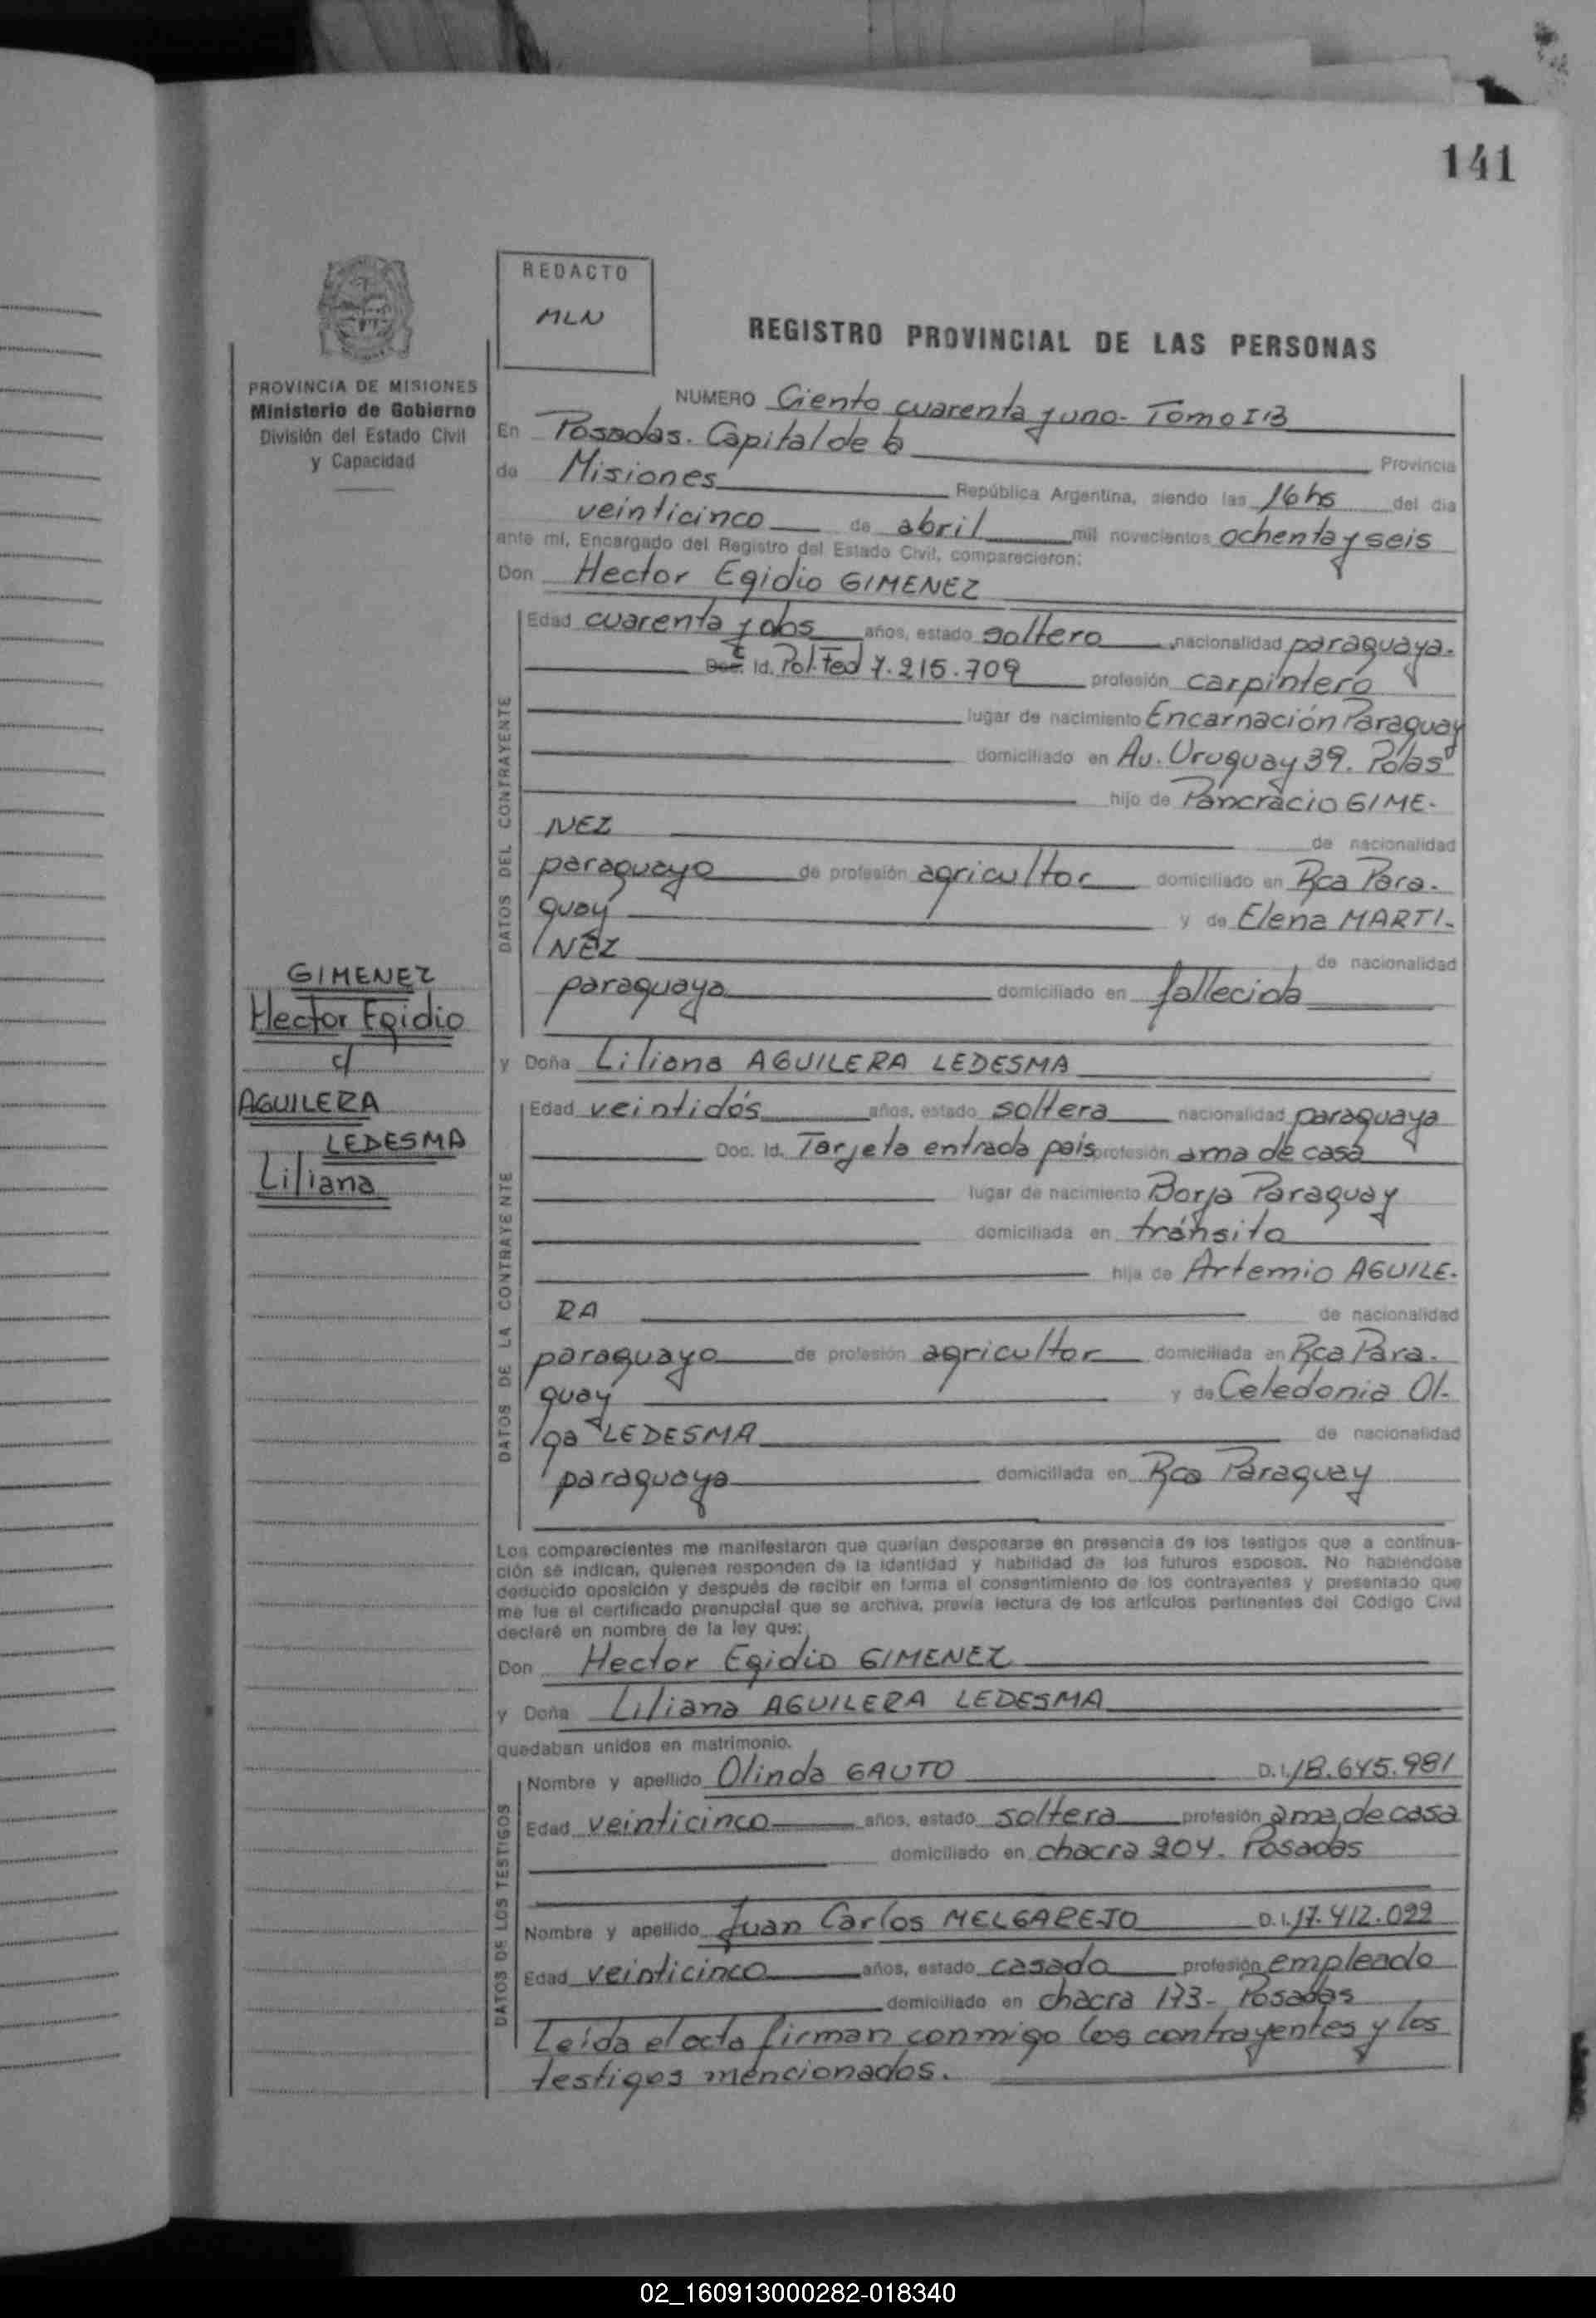 141
REDACTO
MLN
REGISTRO PROVINCIAL DE LAS PERSONAS
PROVINCIA DE MISIONES
Ministerio de Gobierno
División del Estado Civil
y Capacidad
NUMERO Ciento cuarenta y uno - Tomo I B
En Posadas. Capital de la Provincia
de Misiones República Argentina, siendo las 16 hs del día
veinticinco de abril mil novecientos ochenta y seis
ante mí, Encargado del Registro del Estado Civil, comparecieron:
Don Hector Egidio GIMENEZ
DATOS DEL CONTRAYENTE
Edad cuarenta y dos años, estado soltero nacionalidad paraguaya.
Id. Pol. Fed 7.215.709 profesión carpintero
lugar de nacimiento Encarnación Paraguay
domiciliado en Av. Uruguay 39. Pdas
hijo de Pancracio GIME-
NEZ de nacionalidad
paraguayo de profesión agricultor domiciliado en Rca Para-
guay y de Elena MARTI-
NEZ de nacionalidad
paraguaya domiciliado en fallecida
GIMENEZ
Hector Egidio
c/
AGUILERA
LEDESMA
Liliana
y Doña Liliana AGUILERA LEDESMA
DATOS DE LA CONTRAYENTE
Edad veintidós años, estado soltera nacionalidad paraguaya
Doc. Id. Tarjeta entrada país profesión ama de casa
lugar de nacimiento Borja Paraguay
domiciliada en tránsito
hija de Artemio AGUILE-
RA de nacionalidad
paraguayo de profesión agricultor domiciliada en Rca Para-
guay y de Celedonia Ol-
ga LEDESMA de nacionalidad
paraguaya domiciliada en Rca Paraguay
Los comparecientes me manifestaron que querían desposarse en presencia de los testigos que a continua-
ción se indican, quienes responden de la identidad y habilidad de los futuros esposos. No habiéndose
deducido oposición y después de recibir en forma el consentimiento de los contrayentes y presentado que
me fue el certificado prenupcial que se archiva, previa lectura de los artículos pertinentes del Código Civil
declaré en nombre de la ley que:
Don Hector Egidio GIMENEZ
y Doña Liliana AGUILERA LEDESMA
quedaban unidos en matrimonio.
DATOS DE LOS TESTIGOS
Nombre y apellido Olinda GAUTO D.I. 18.645.981
Edad veinticinco años, estado soltera profesión ama de casa
domiciliado en chacra 204. Posadas
Nombre y apellido Juan Carlos MELGAREJO D.I. 17.412.022
Edad veinticinco años, estado casado profesión empleado
domiciliado en chacra 173- Posadas
Leída el acta firman conmigo los contrayentes y los
testigos mencionados.
02_160913000282-018340